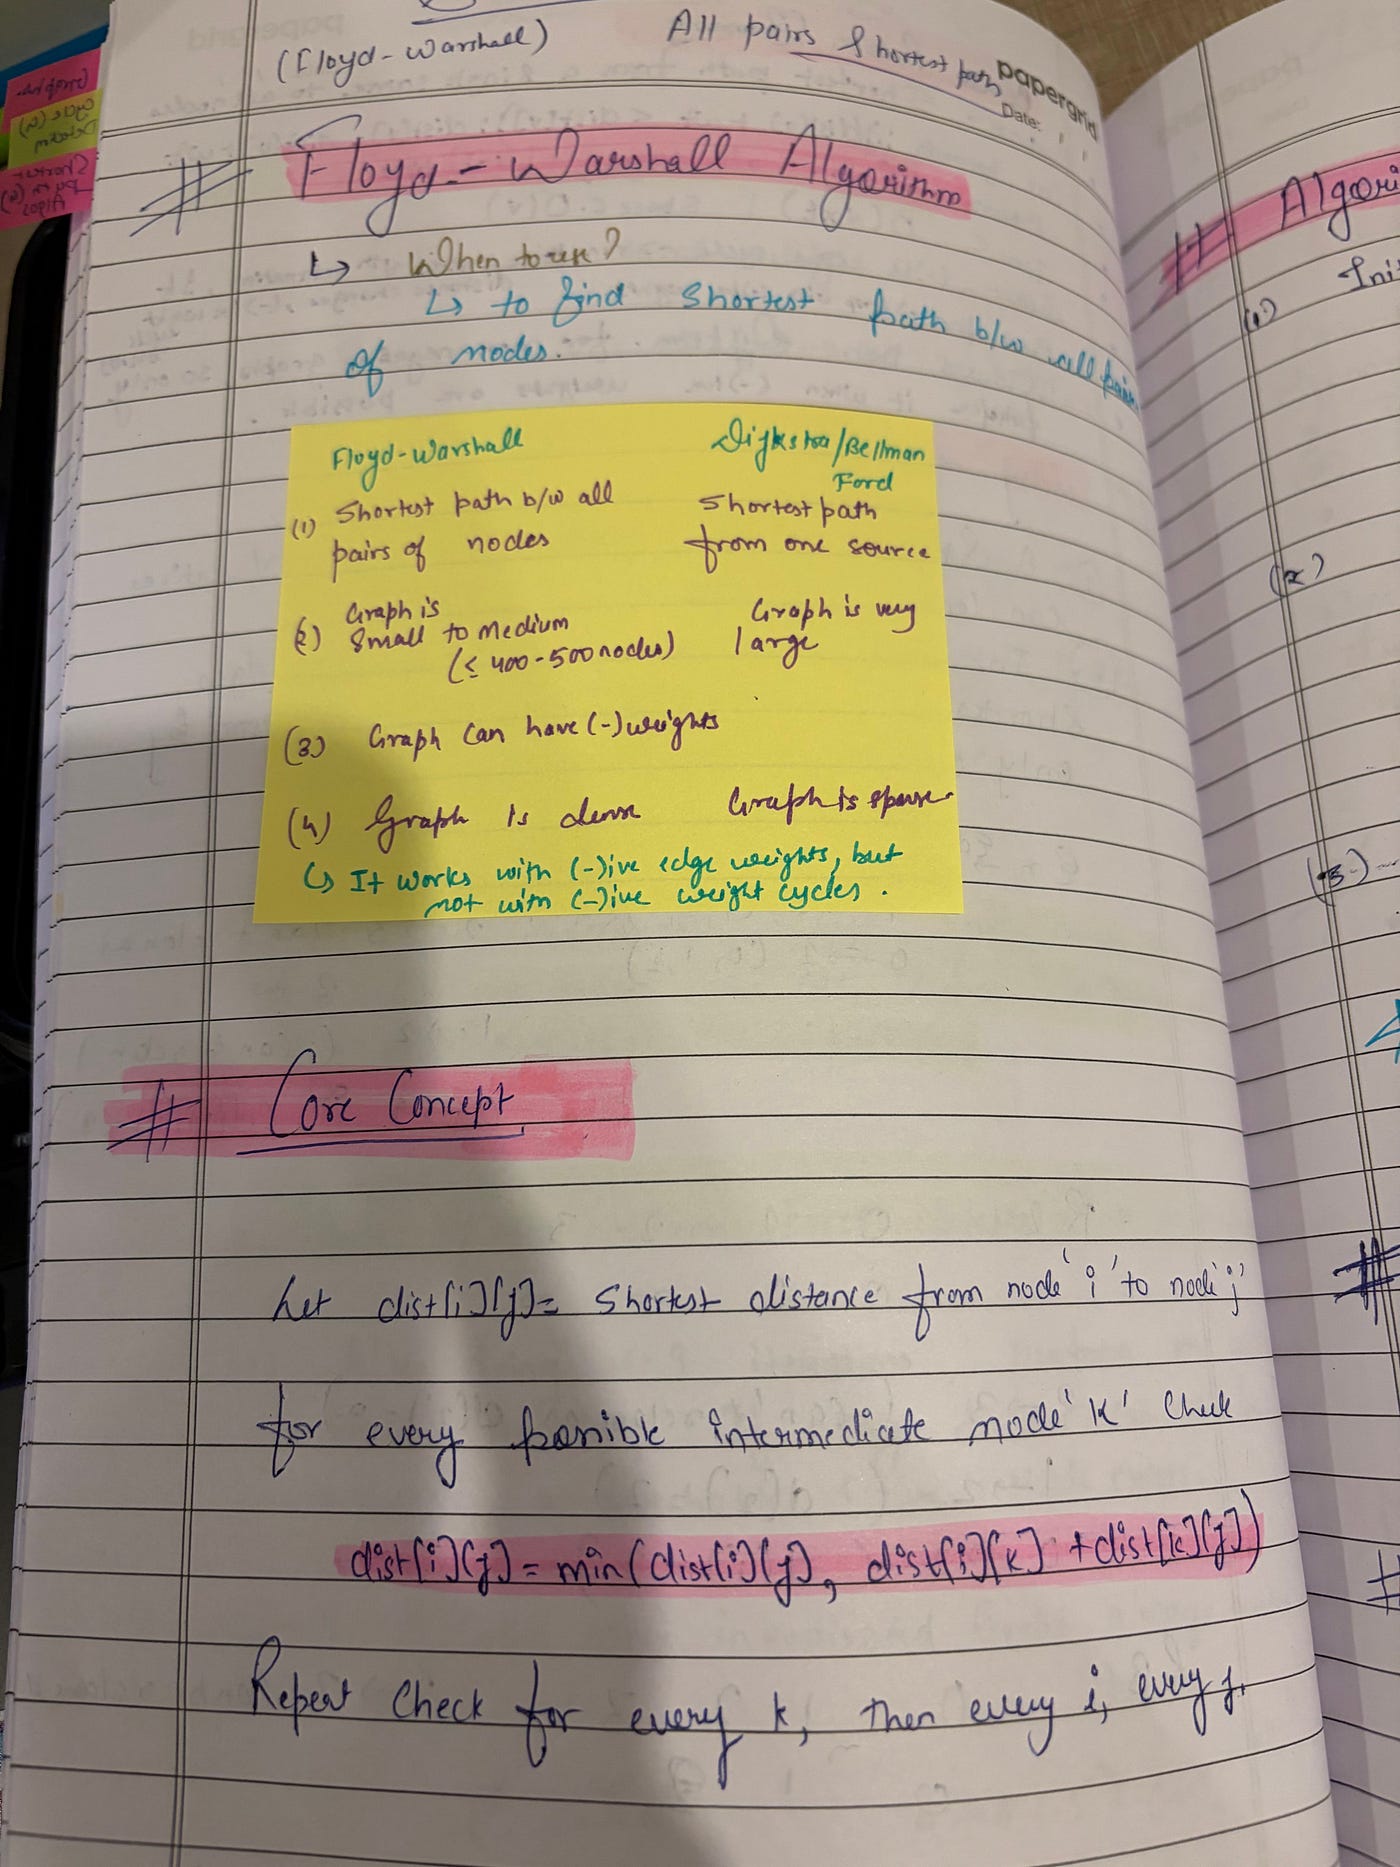 (Floyd-Warshall) All pairs Shortest path
papergrid
Date:
# Floyd-Warshall Algorithm
↳ When to use?
↳ to find Shortest path b/w all pairs
of nodes.
Floyd-Warshall Dijkstra/Bellman
Ford
(1) Shortest path b/w all Shortest path
pairs of nodes from one source
(2) Graph is Graph is very
Small to medium large
(≤ 400-500 nodes)
(3) Graph can have (-) weights
(4) Graph is dense Graph is sparse
↳ It works with (-)ive edge weights, but
not with (-)ive weight cycles.
# Core Concept
Let dist[i][j] = Shortest distance from node 'i' to node 'j'
for every possible intermediate node 'k' check
dist[i][j] = min(dist[i][j], dist[i][k] + dist[k][j])
Repeat Check for every k, then every i, every j.
# Algori
(1) Ini
(2)
(3)
#
#